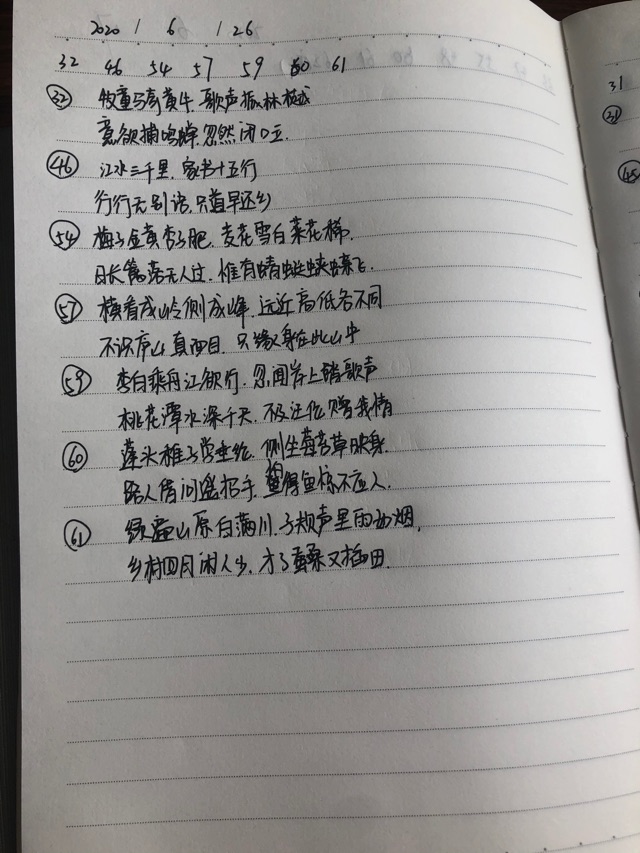 2020 / 6 / 26
32 46 54 57 59 60 61
㉜ 牧童马奇黄牛. 歌声振林樾
意欲捕鸣蝉. 忽然闭口立.
㊻ 江水三千里. 家书十五行
行行无别话. 只道早还乡
54 梅子金黄杏子肥. 麦花雪白菜花稀.
日长篱落无人过. 惟有蜻蜓蛱蝶飞.
57 横看成岭侧成峰. 远近高低各不同
不识庐山真面目. 只缘身在此山中
59 李白乘舟江欲行. 忽闻岸上踏歌声
桃花潭水深千尺. 不及汪伦赠我情
60 蓬头稚子学垂纶. 侧坐莓苔草映身.
路人借问遥招手. 怕得鱼惊不应人.
61 绿遍山原白满川. 子规声里雨如烟,
乡村四月闲人少. 才了蚕桑又插田.
31
㉛
㊺